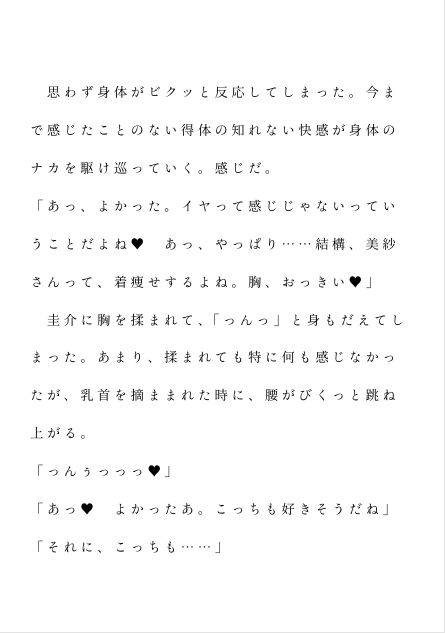 思わず身体がビクッと反応してしまった。今ま
で感じたことのない得体の知れない快感が身体の
ナカを駆け巡っていく。感じだ。
「あっ、よかった。イヤって感じじゃないってい
うことだよね♥　あっ、やっぱり……結構、美紗
さんって、着痩せするよね。胸、おっきい♥」
圭介に胸を揉まれて、「っんっ」と身もだえてし
まった。あまり、揉まれても特に何も感じなかっ
たが、乳首を摘ままれた時に、腰がびくっと跳ね
上がる。
「っんぅっっっ♥」
「あっ♥　よかったあ。こっちも好きそうだね」
「それに、こっちも……」